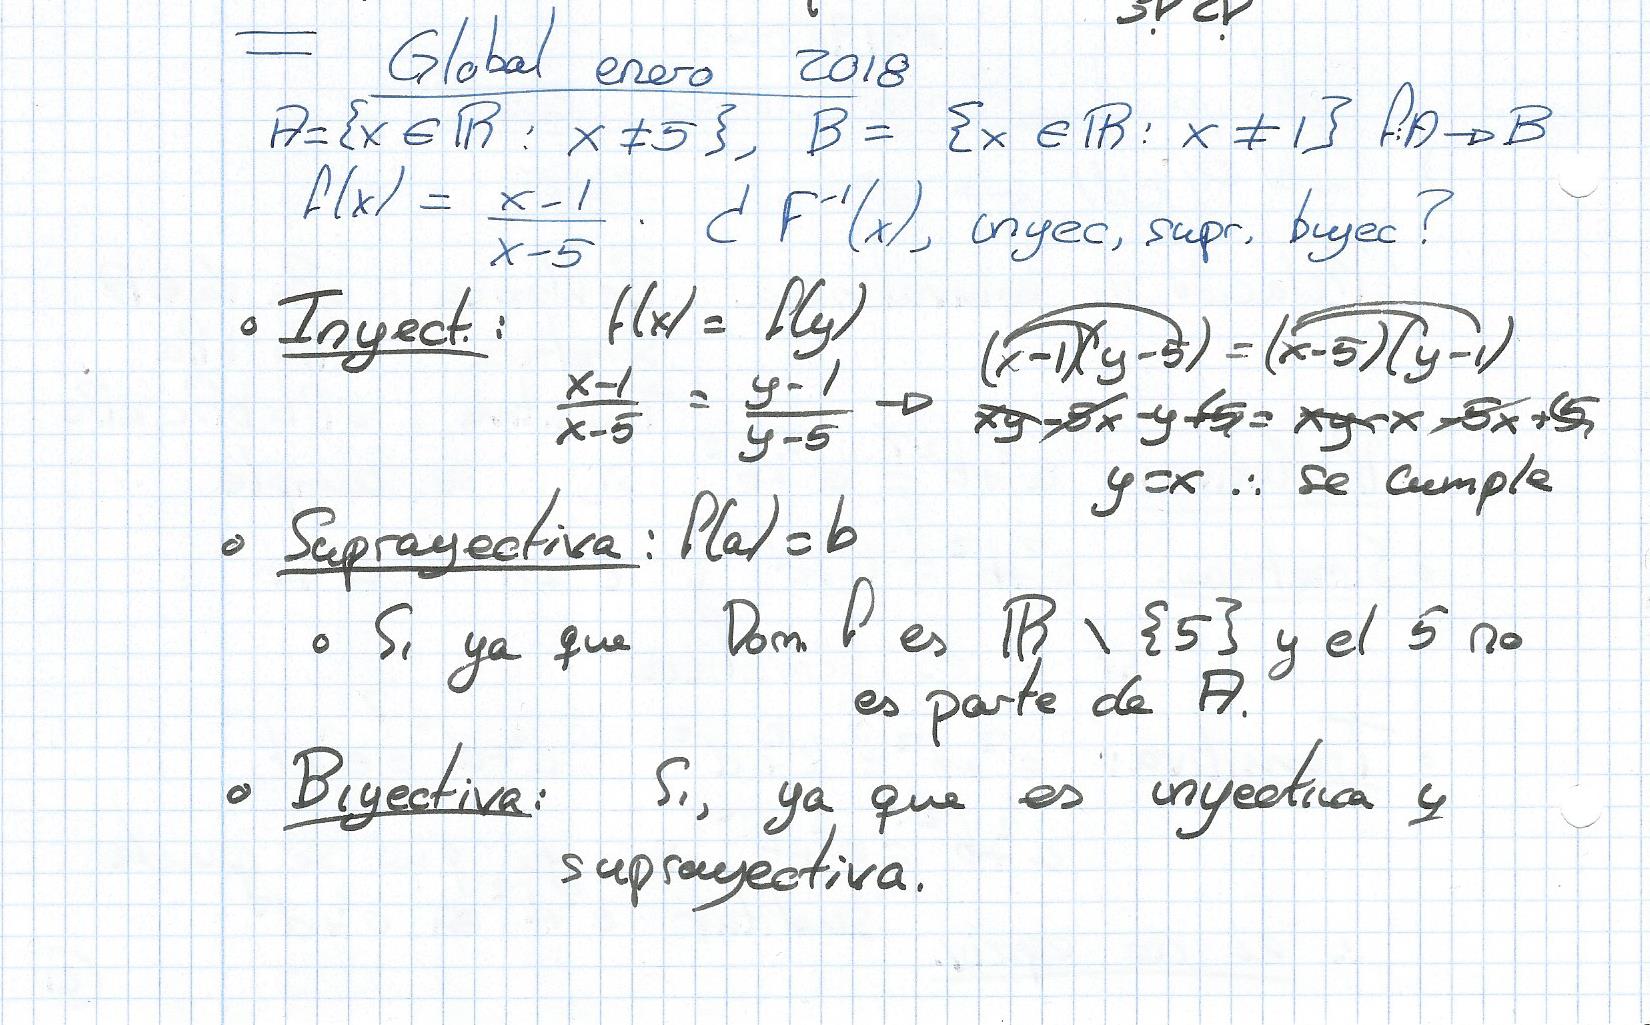 Global enero 2018
A={x ∈ ℝ : x ≠ 5}, B = {x ∈ ℝ : x ≠ 1} f:A→B
f(x) = (x-1)/(x-5) . ¿ F⁻¹(x), inyec, supr. biyec?
• Inyect.: f(x) = f(y)
(x-1)(y-5) = (x-5)(y-1)
(x-1)/(x-5) = (y-1)/(y-5) →
xy-5x-y+5 = xy-x-5x+5
y=x ∴ se cumple
• Suprayectiva: f(a)=b
• Si ya que Dom f es ℝ \ {5} y el 5 no
es parte de A.
• Biyectiva: Si, ya que es inyectiva y
suprayectiva.